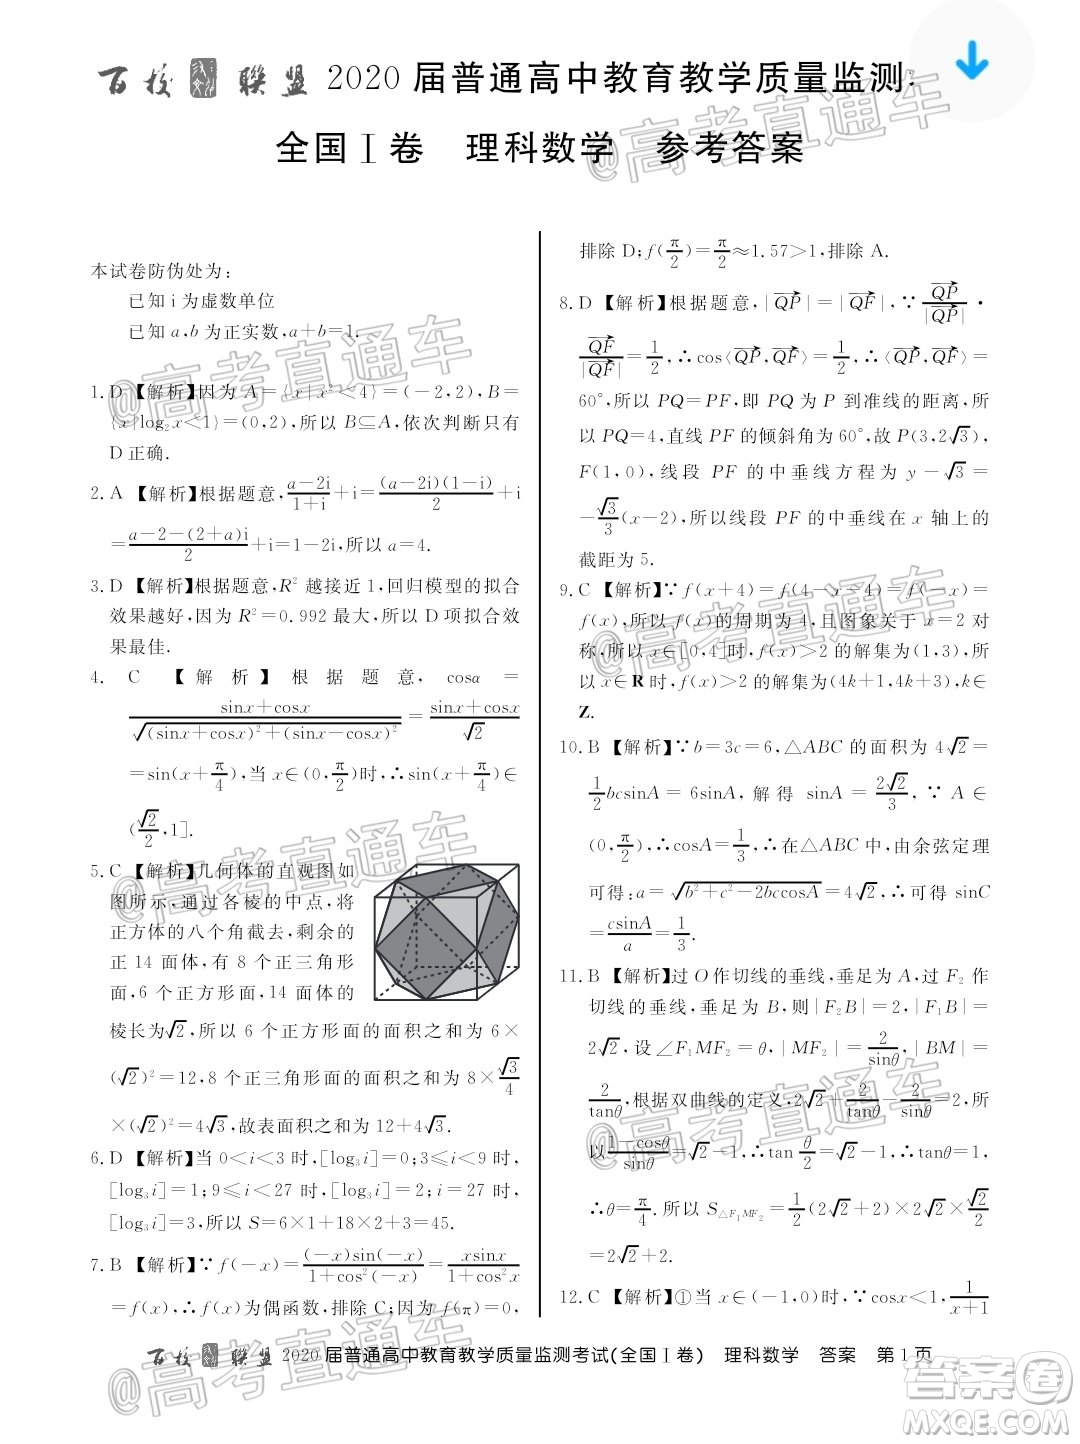 百校联盟 2020 届普通高中教育教学质量监测
全国 I 卷 理科数学 参考答案
本试卷防伪处为:
已知 i 为虚数单位
已知 a,b 为正实数,a+b=1.
1. D 【解析】因为 A={x|x²<4}=(-2,2), B=
{x|log₂x<1}=(0,2),所以 B⊆A,依次判断只有
D 正确.
2. A 【解析】根据题意,(a-2i)/(1+i)+i=((a-2i)(1-i))/2+i
=(a-2-(2+a)i)/2+i=1-2i,所以 a=4.
3. D 【解析】根据题意,R² 越接近 1,回归模型的拟合
效果越好,因为 R²=0.992 最大,所以 D 项拟合效
果最佳.
4. C 【解析】根据题意, cosα =
(sinx+cosx)/√((sinx+cosx)²+(sinx-cosx)²)=(sinx+cosx)/√2
=sin(x+π/4),当 x∈(0,π/2)时,∴sin(x+π/4)∈
(√2/2,1].
5. C 【解析】几何体的直观图如
图所示,通过各棱的中点,将
正方体的八个角截去,剩余的
正 14 面体,有 8 个正三角形
面,6 个正方形面,14 面体的
棱长为√2,所以 6 个正方形面的面积之和为 6×
(√2)²=12,8 个正三角形面的面积之和为 8×√3/4
×(√2)²=4√3,故表面积之和为 12+4√3.
6. D 【解析】当 0<i<3 时,[log₃i]=0;3≤i<9 时,
[log₃i]=1;9≤i<27 时,[log₃i]=2;i=27 时,
[log₃i]=3,所以 S=6×1+18×2+3=45.
7. B 【解析】∵f(-x)=((-x)sin(-x))/(1+cos²(-x))=(xsinx)/(1+cos²x)
=f(x),∴f(x)为偶函数,排除 C;因为 f(π)=0,
排除 D;f(π/2)=π/2≈1.57>1,排除 A.
8. D 【解析】根据题意,|QP|=|QF|,∵QP/|QP|·
QF/|QF|=1/2,∴cos⟨QP,QF⟩=1/2,∴⟨QP,QF⟩=
60°,所以 PQ=PF,即 PQ 为 P 到准线的距离,所
以 PQ=4,直线 PF 的倾斜角为 60°,故 P(3,2√3),
F(1,0),线段 PF 的中垂线方程为 y-√3=
-√3/3(x-2),所以线段 PF 的中垂线在 x 轴上的
截距为 5.
9. C 【解析】∵f(x+4)=f(4-x-4)=f(-x)=
f(x),所以 f(x)的周期为 4,且图象关于 x=2 对
称,所以 x∈[0,4]时,f(x)>2 的解集为(1,3),所
以 x∈R 时,f(x)>2 的解集为(4k+1,4k+3),k∈
Z.
10. B 【解析】∵b=3c=6,△ABC 的面积为 4√2=
1/2bcsinA=6sinA,解得 sinA=2√2/3,∵A∈
(0,π/2),∴cosA=1/3,∴在△ABC 中,由余弦定理
可得:a=√(b²+c²-2bccosA)=4√2,∴可得 sinC
=csinA/a=1/3.
11. B 【解析】过 O 作切线的垂线,垂足为 A,过 F₂ 作
切线的垂线,垂足为 B,则|F₂B|=2,|F₁B|=
2√2,设∠F₁MF₂=θ,|MF₂|=2/sinθ,|BM|=
2/tanθ,根据双曲线的定义,2√2+2/tanθ-2/sinθ=2,所
以(1-cosθ)/sinθ=√2-1,∴tan θ/2=√2-1,
∴θ=π/4.所以 S△F₁MF₂=1/2(2√2+2)×2√2×√2/2
=2√2+2.
12. C 【解析】①当 x∈(-1,0)时,∵cosx<1,1/(x+1)
百校联盟 2020 届普通高中教育教学质量监测考试(全国 I 卷) 理科数学 答案 第 1 页
@高考直通车
@高考直通车
@高考直通车
@高考直通车
@高考直通车
@高考直通车
@高考直通车
@高考直通车
答案圈
MXQE.COM